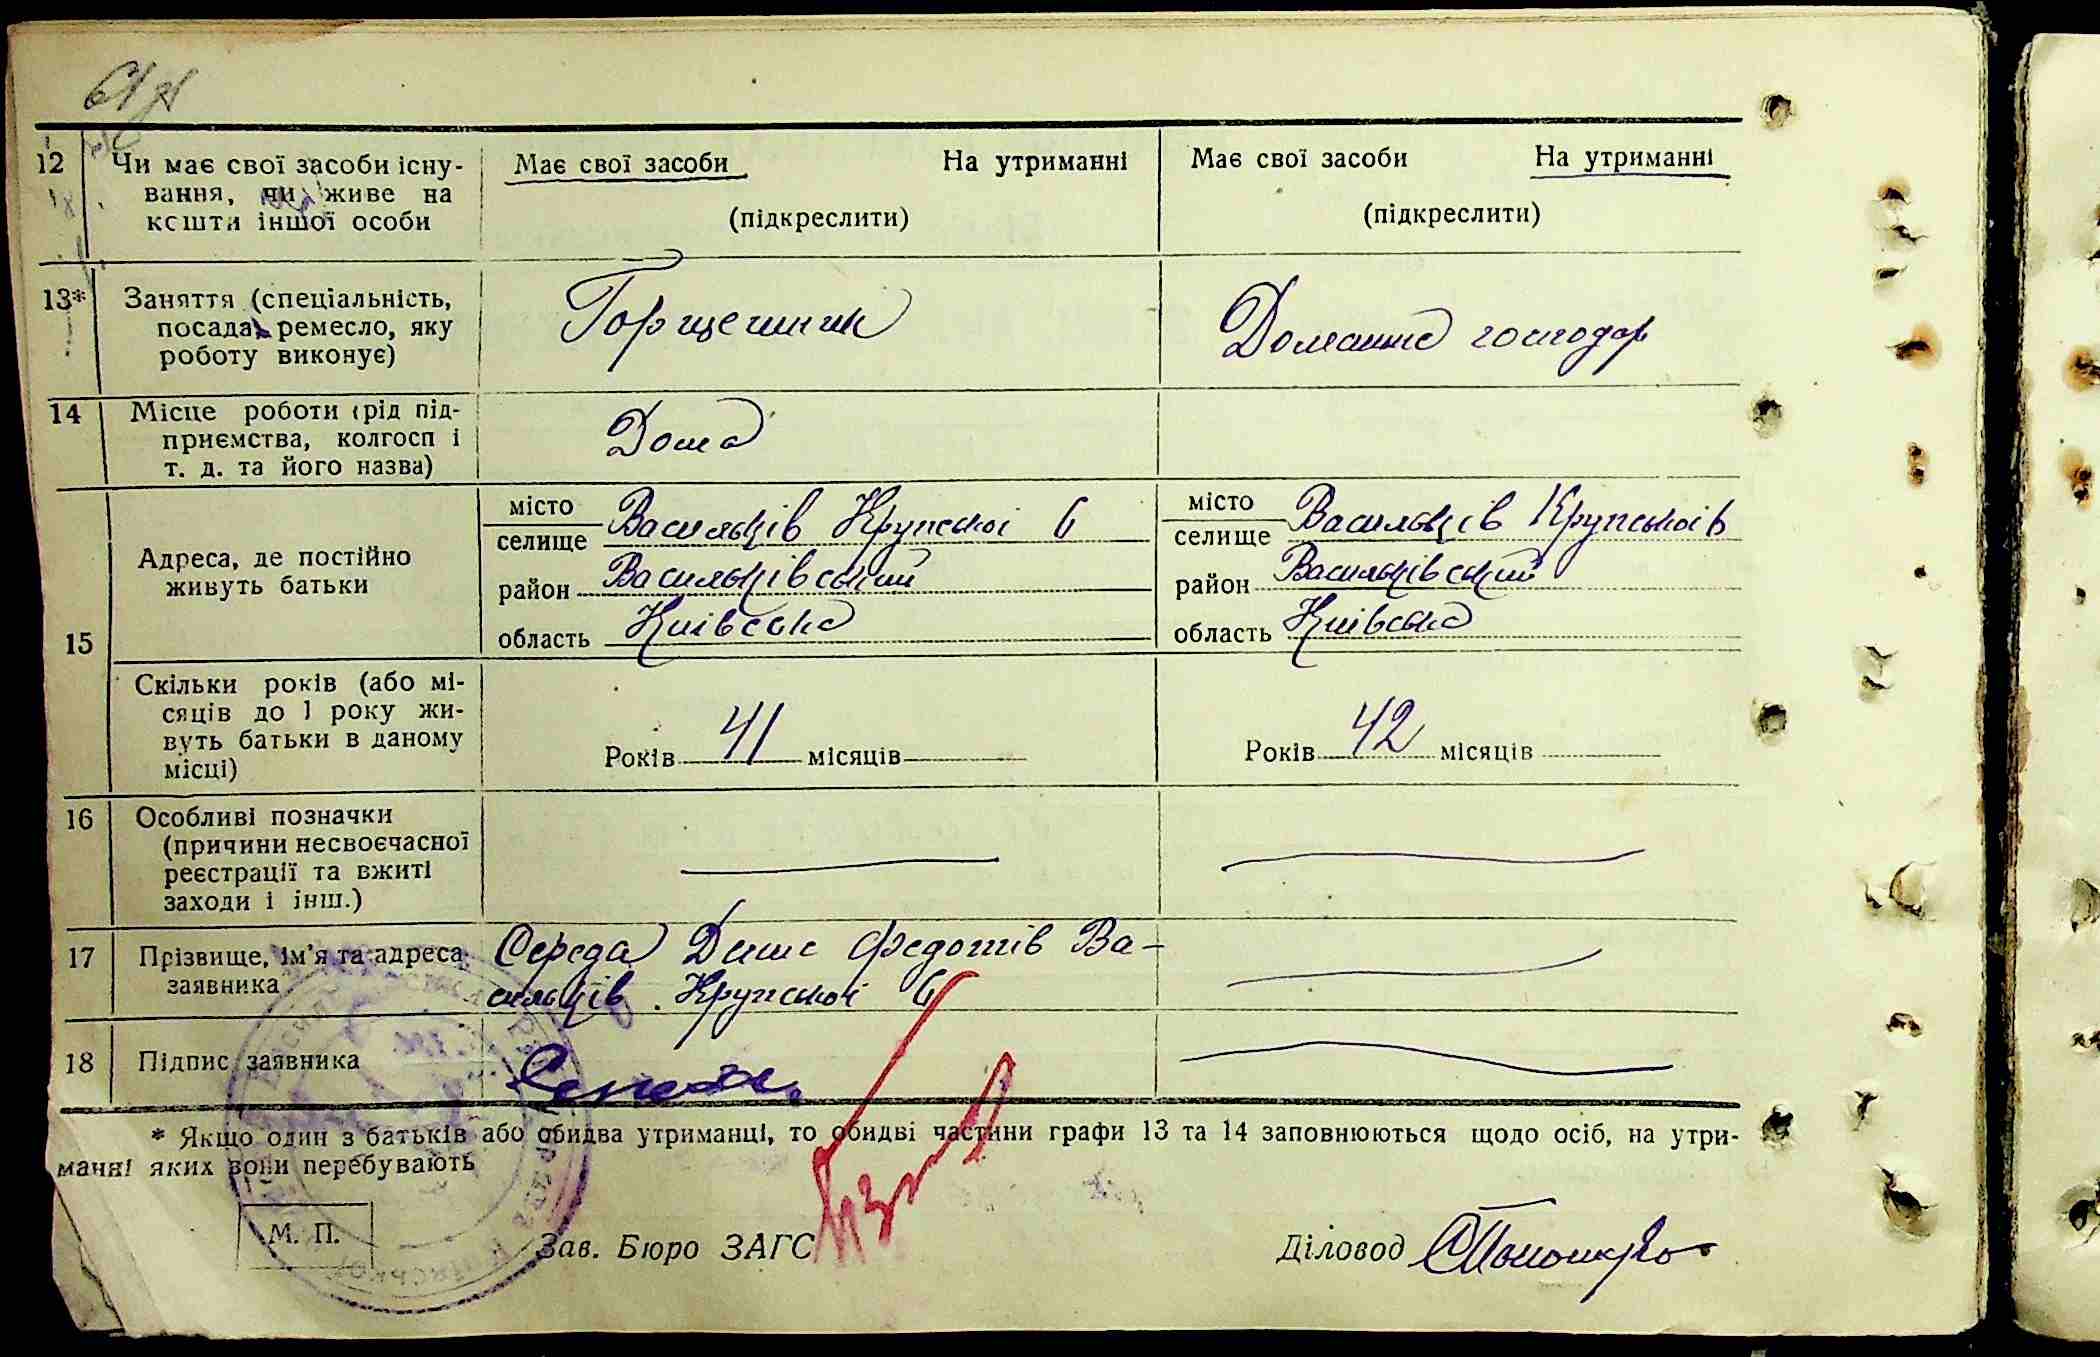 12 Чи має свої засоби існу-
вання, чи живе на
кошти іншої особи
Має свої засоби На утриманні
(підкреслити)
Має свої засоби На утриманні
(підкреслити)
13* Заняття (спеціальність,
посада, ремесло, яку
роботу виконує)
Горщешник
Домашнє господар
14 Місце роботи (рід під-
приємства, колгосп і
т. д. та його назва)
Дома
15 Адреса, де постійно
живуть батьки
місто
селище Васильків Крупської 6
район Васильківський
область Київська
місто
селище Васильків Крупської 6
район Васильківський
область Київська
Скільки років (або мі-
сяців до 1 року жи-
вуть батьки в даному
місці)
Років 41 місяців
Років 42 місяців
16 Особливі позначки
(причини несвоєчасної
реєстрації та вжиті
заходи і інш.)
17 Прізвище, ім'я та адреса
заявника
Середа Федотів Ва-
сильків. Крупської 6
18 Підпис заявника
* Якщо один з батьків або обидва утриманці, то обидві частини графи 13 та 14 заповнюються щодо осіб, на утри-
манні яких вони перебувають
М. П.
Зав. Бюро ЗАГС
Діловод